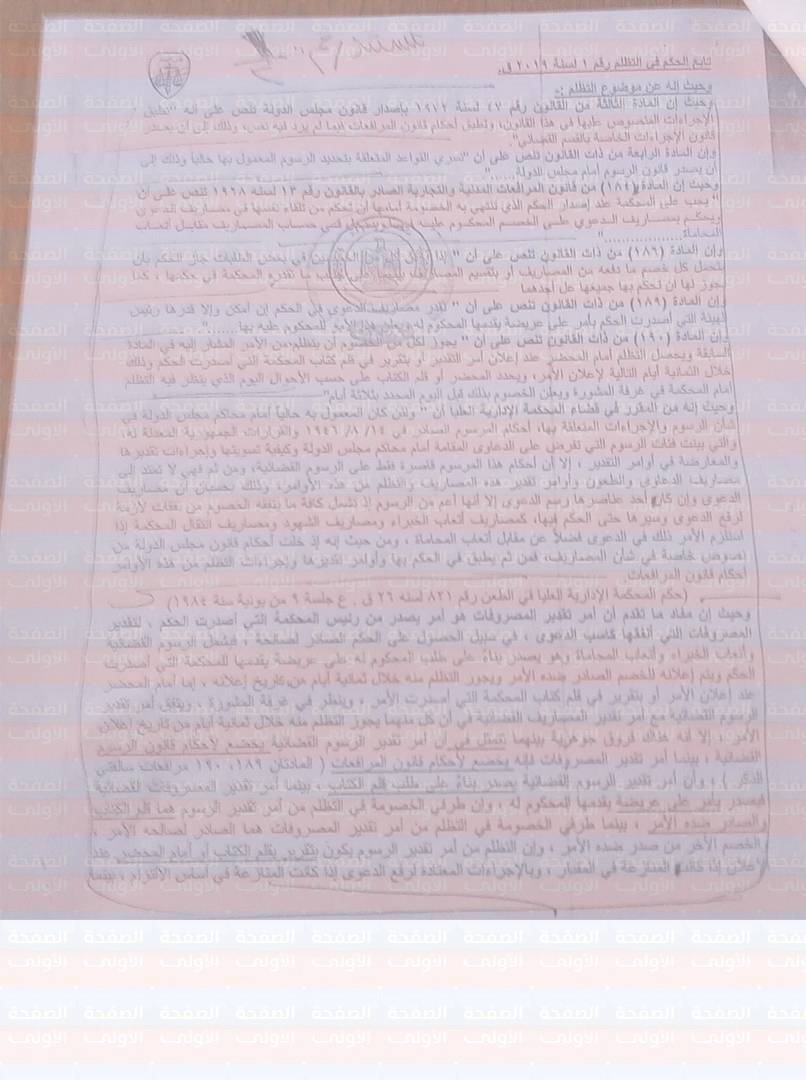 تابع الحكم في التظلم رقم ١ لسنة ٢٠١٩ ق.
وحيث إنه عن موضوع التظلم :-
وحيث إن المادة الثالثة من القانون رقم ٤٧ لسنة ١٩٧٢ بإصدار قانون مجلس الدولة تنص على أنه "تطبق
الإجراءات المنصوص عليها في هذا القانون، وتطبق أحكام قانون المرافعات فيما لم يرد فيه نص، وذلك إلى أن يصدر
قانون الإجراءات الخاصة بالقسم القضائي".
وإن المادة الرابعة من ذات القانون تنص على أن "تسري القواعد المتعلقة بتحديد الرسوم المعمول بها حالياً وذلك إلى
أن يصدر قانون الرسوم أمام مجلس الدولة......"
وحيث إن المادة (١٨٤) من قانون المرافعات المدنية والتجارية الصادر بالقانون رقم ١٣ لسنة ١٩٦٨ تنص على أن
" يجب على المحكمة عند إصدار الحكم الذي تنتهي به الخصومة أمامها أن تحكم من تلقاء نفسها في مصاريف الدعوى
ويحكم بمصاريف الدعوى على الخصم المحكوم عليه فيها ويدخل في حساب المصاريف مقابل أتعاب
المحاماة................"
وإن المادة (١٨٦) من ذات القانون تنص على أن " إذا أخفق كل من الخصمين في بعض الطلبات جاز الحكم بأن
يتحمل كل خصم ما دفعه من المصاريف أو بتقسيم المصاريف بينهما على حسب ما تقدره المحكمة في حكمها ، كما
يجوز لها أن تحكم بها جميعها على أحدهما
وإن المادة (١٨٩) من ذات القانون تنص على أن " تقدر مصاريف الدعوى في الحكم إن أمكن وإلا قدرها رئيس
الهيئة التي أصدرت الحكم بأمر على عريضة يقدمها المحكوم له ويعلن هذا الأمر للمحكوم عليه بها ......".
وإن المادة (١٩٠) من ذات القانون تنص على أن " يجوز لكل من الخصوم أن يتظلم من الأمر المشار إليه في المادة
السابقة ويحصل التظلم أمام المحضر عند إعلان أمر التقدير أو بتقرير في قلم كتاب المحكمة التي أصدرت الحكم وذلك
خلال الثمانية أيام التالية لإعلان الأمر، ويحدد المحضر أو قلم الكتاب على حسب الأحوال اليوم الذي ينظر فيه التظلم
أمام المحكمة في غرفة المشورة ويعلن الخصوم بذلك قبل اليوم المحدد بثلاثة أيام"
وحيث إنه من المقرر في قضاء المحكمة الإدارية العليا أن " ولئن كان المعمول به حالياً أمام محاكم مجلس الدولة في
شأن الرسوم والإجراءات المتعلقة بها، أحكام المرسوم الصادر في ١٤/ ٨/ ١٩٤٦ والقرارات الجمهورية المعدلة له،
والتي بينت فئات الرسوم التي تفرض على الدعاوى المقامة أمام محاكم مجلس الدولة وكيفية تسويتها وإجراءات تقديرها
والمعارضة في أوامر التقدير ، إلا أن أحكام هذا المرسوم قاصرة فقط على الرسوم القضائية، ومن ثم فهي لا تمتد إلى
مصاريف الدعاوى والطعون وأوامر تقدير هذه المصاريف والتظلم من هذه الأوامر، وذلك بحسبان أن مصاريف
الدعوى وإن كان أحد عناصرها رسم الدعوى إلا أنها أعم من الرسوم إذ تشمل كافة ما ينفقه الخصوم من نفقات لازمة
لرفع الدعوى وسيرها حتى الحكم فيها، كمصاريف أتعاب الخبراء ومصاريف الشهود ومصاريف انتقال المحكمة إذا
استلزم الأمر ذلك في الدعوى فضلاً عن مقابل أتعاب المحاماة ، ومن حيث إنه إذ خلت أحكام قانون مجلس الدولة من
نصوص خاصة في شأن المصاريف، فمن ثم يطبق في الحكم بها وأوامر تقديرها وإجراءات التظلم من هذه الأوامر
أحكام قانون المرافعات.
(حكم المحكمة الإدارية العليا في الطعن رقم ٨٢١ لسنة ٢٦ ق . ع جلسة ٩ من يونية سنة ١٩٨٤)
وحيث إن مفاد ما تقدم أن أمر تقدير المصروفات هو أمر يصدر من رئيس المحكمة التي أصدرت الحكم ، لتقدير
المصروفات التي أنفقها كاسب الدعوى ، في سبيل الحصول على الحكم الصادر لصالحه ، فيشمل الرسوم القضائية
وأتعاب الخبراء وأتعاب المحاماة وهو يصدر بناءً على طلب المحكوم له على عريضة يقدمها للمحكمة التي أصدرت
الحكم ويتم إعلانه للخصم الصادر ضده الأمر ويجوز التظلم منه خلال ثمانية أيام من تاريخ إعلانه ، إما أمام المحضر
عند إعلان الأمر أو بتقرير في قلم كتاب المحكمة التي أصدرت الأمر ، وينظر في غرفة المشورة ، ويتفق أمر تقدير
الرسوم القضائية مع أمر تقدير المصاريف القضائية في أن كل منهما يجوز التظلم منه خلال ثمانية أيام من تاريخ إعلان
الأمر ، إلا أنه هناك فروق جوهرية بينهما تتمثل في أن أمر تقدير الرسوم القضائية يخضع لأحكام قانون الرسوم
القضائية ، بينما أمر تقدير المصروفات فإنه يخضع لأحكام قانون المرافعات ( المادتان ١٨٩، ١٩٠ مرافعات سالفتي
الذكر ) ، وأن أمر تقدير الرسوم القضائية يصدر بناءً على طلب قلم الكتاب ، بينما أمر تقدير المصروفات القضائية
فيصدر بأمر على عريضة يقدمها المحكوم له ، وإن طرفي الخصومة في التظلم من أمر تقدير الرسوم هما قلم الكتاب
والصادر ضده الأمر ، بينما طرفي الخصومة في التظلم من أمر تقدير المصروفات هما الصادر لصالحه الأمر ،
الخصم الآخر من صدر ضده الأمر ، وإن التظلم من أمر تقدير الرسوم يكون بتقرير بقلم الكتاب أو أمام المحضر عند
إعلان إذا كانت المنازعة في المقدار ، وبالإجراءات المعتادة لرفع الدعوى إذا كانت المنازعة في أساس الالتزام ، بينما
الصفحة الأولى